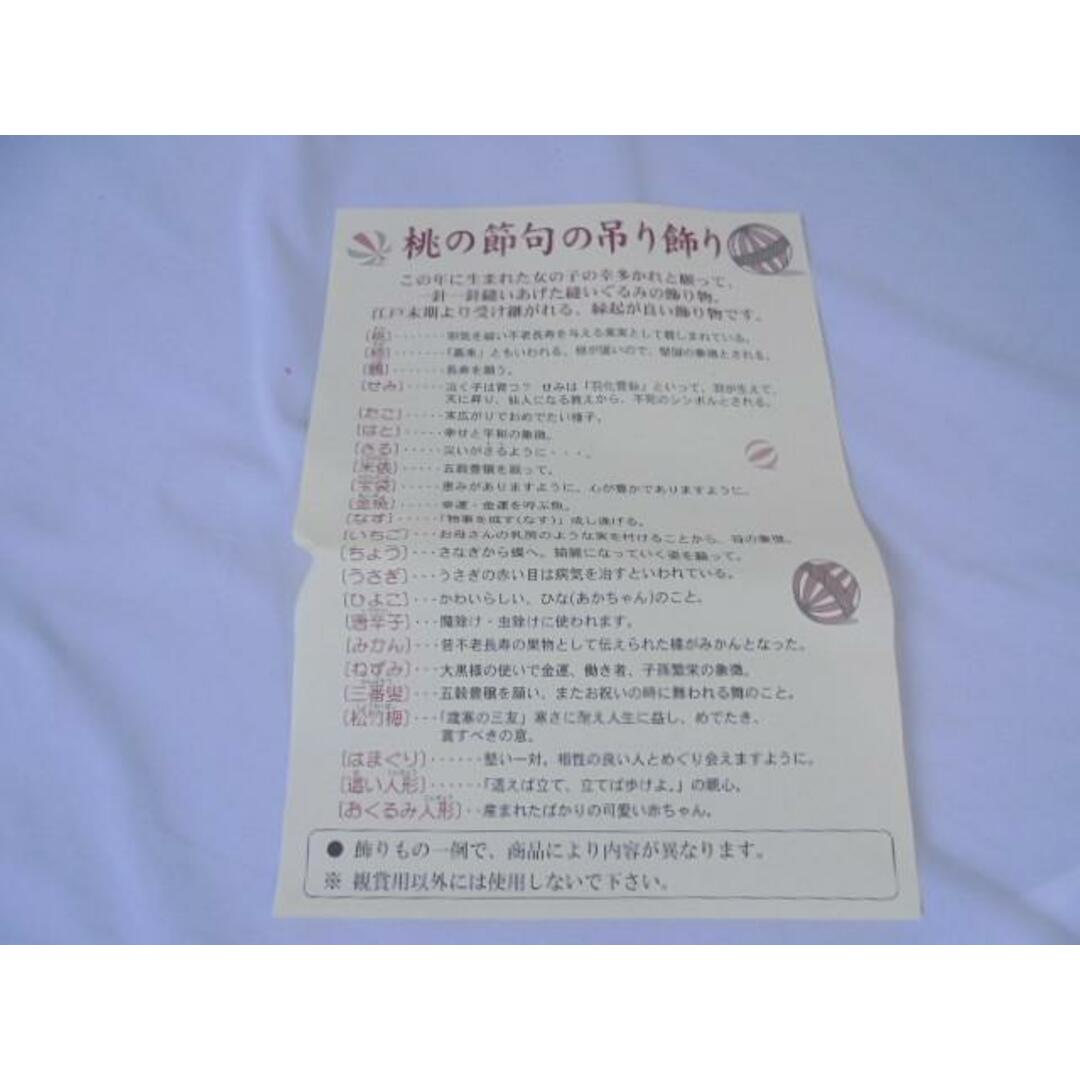 桃の節句の吊り飾り
この年に生まれた女の子の幸多かれと願って、
一針一針縫いあげた縫いぐるみの飾り物。
江戸末期より受け継がれる、縁起が良い飾り物です。
〔桃〕‥‥‥邪気を祓い不老長寿を与える果実として親しまれている。
〔柿〕‥‥‥「嘉来」ともいわれる、根が強いので、堅固の象徴とされる。
〔鶴〕‥‥‥長寿を願う。
〔せみ〕‥‥‥泣く子は育つ? せみは「羽化登仙」といって、羽が生えて、
天に昇り、仙人になる教えから、不死のシンボルとされる。
〔たこ〕‥‥‥末広がりでおめでたい様子。
〔はと〕‥‥‥幸せと平和の象徴。
〔さる〕‥‥‥災いがさるように・・・。
〔米俵〕‥‥‥五穀豊穣を願って。
〔宝袋〕‥‥‥恵みがありますように、心が豊かでありますように。
〔金魚〕‥‥‥幸運・金運を呼ぶ魚。
〔なす〕‥‥‥「物事を成す(なす)」成し遂げる。
〔いちご〕‥‥お母さんの乳房のような実を付けることから、母の象徴。
〔ちょう〕‥‥さなぎから蝶へ、綺麗になっていく姿を願って。
〔うさぎ〕‥‥うさぎの赤い目は病気を治すといわれている。
〔ひよこ〕‥‥かわいらしい、ひな(あかちゃん)のこと。
〔唐辛子〕‥‥魔除け・虫除けに使われます。
〔みかん〕‥‥昔不老長寿の果物として伝えられた橘がみかんとなった。
〔ねずみ〕‥‥大黒様の使いで金運、働き者、子孫繁栄の象徴。
〔三番叟〕‥‥五穀豊穣を願い、またお祝いの時に舞われる舞のこと。
〔松竹梅〕‥‥「歳寒の三友」寒さに耐え人生に益し、めでたき、
賞すべきの意。
〔はまぐり〕‥‥‥堅い一対。相性の良い人とめぐり会えますように。
〔這い人形〕‥‥‥「這えば立て、立てば歩けよ。」の親心。
〔おくるみ人形〕‥産まれたばかりの可愛い赤ちゃん。
● 飾りもの一例で、商品により内容が異なります。
※ 観賞用以外には使用しないで下さい。